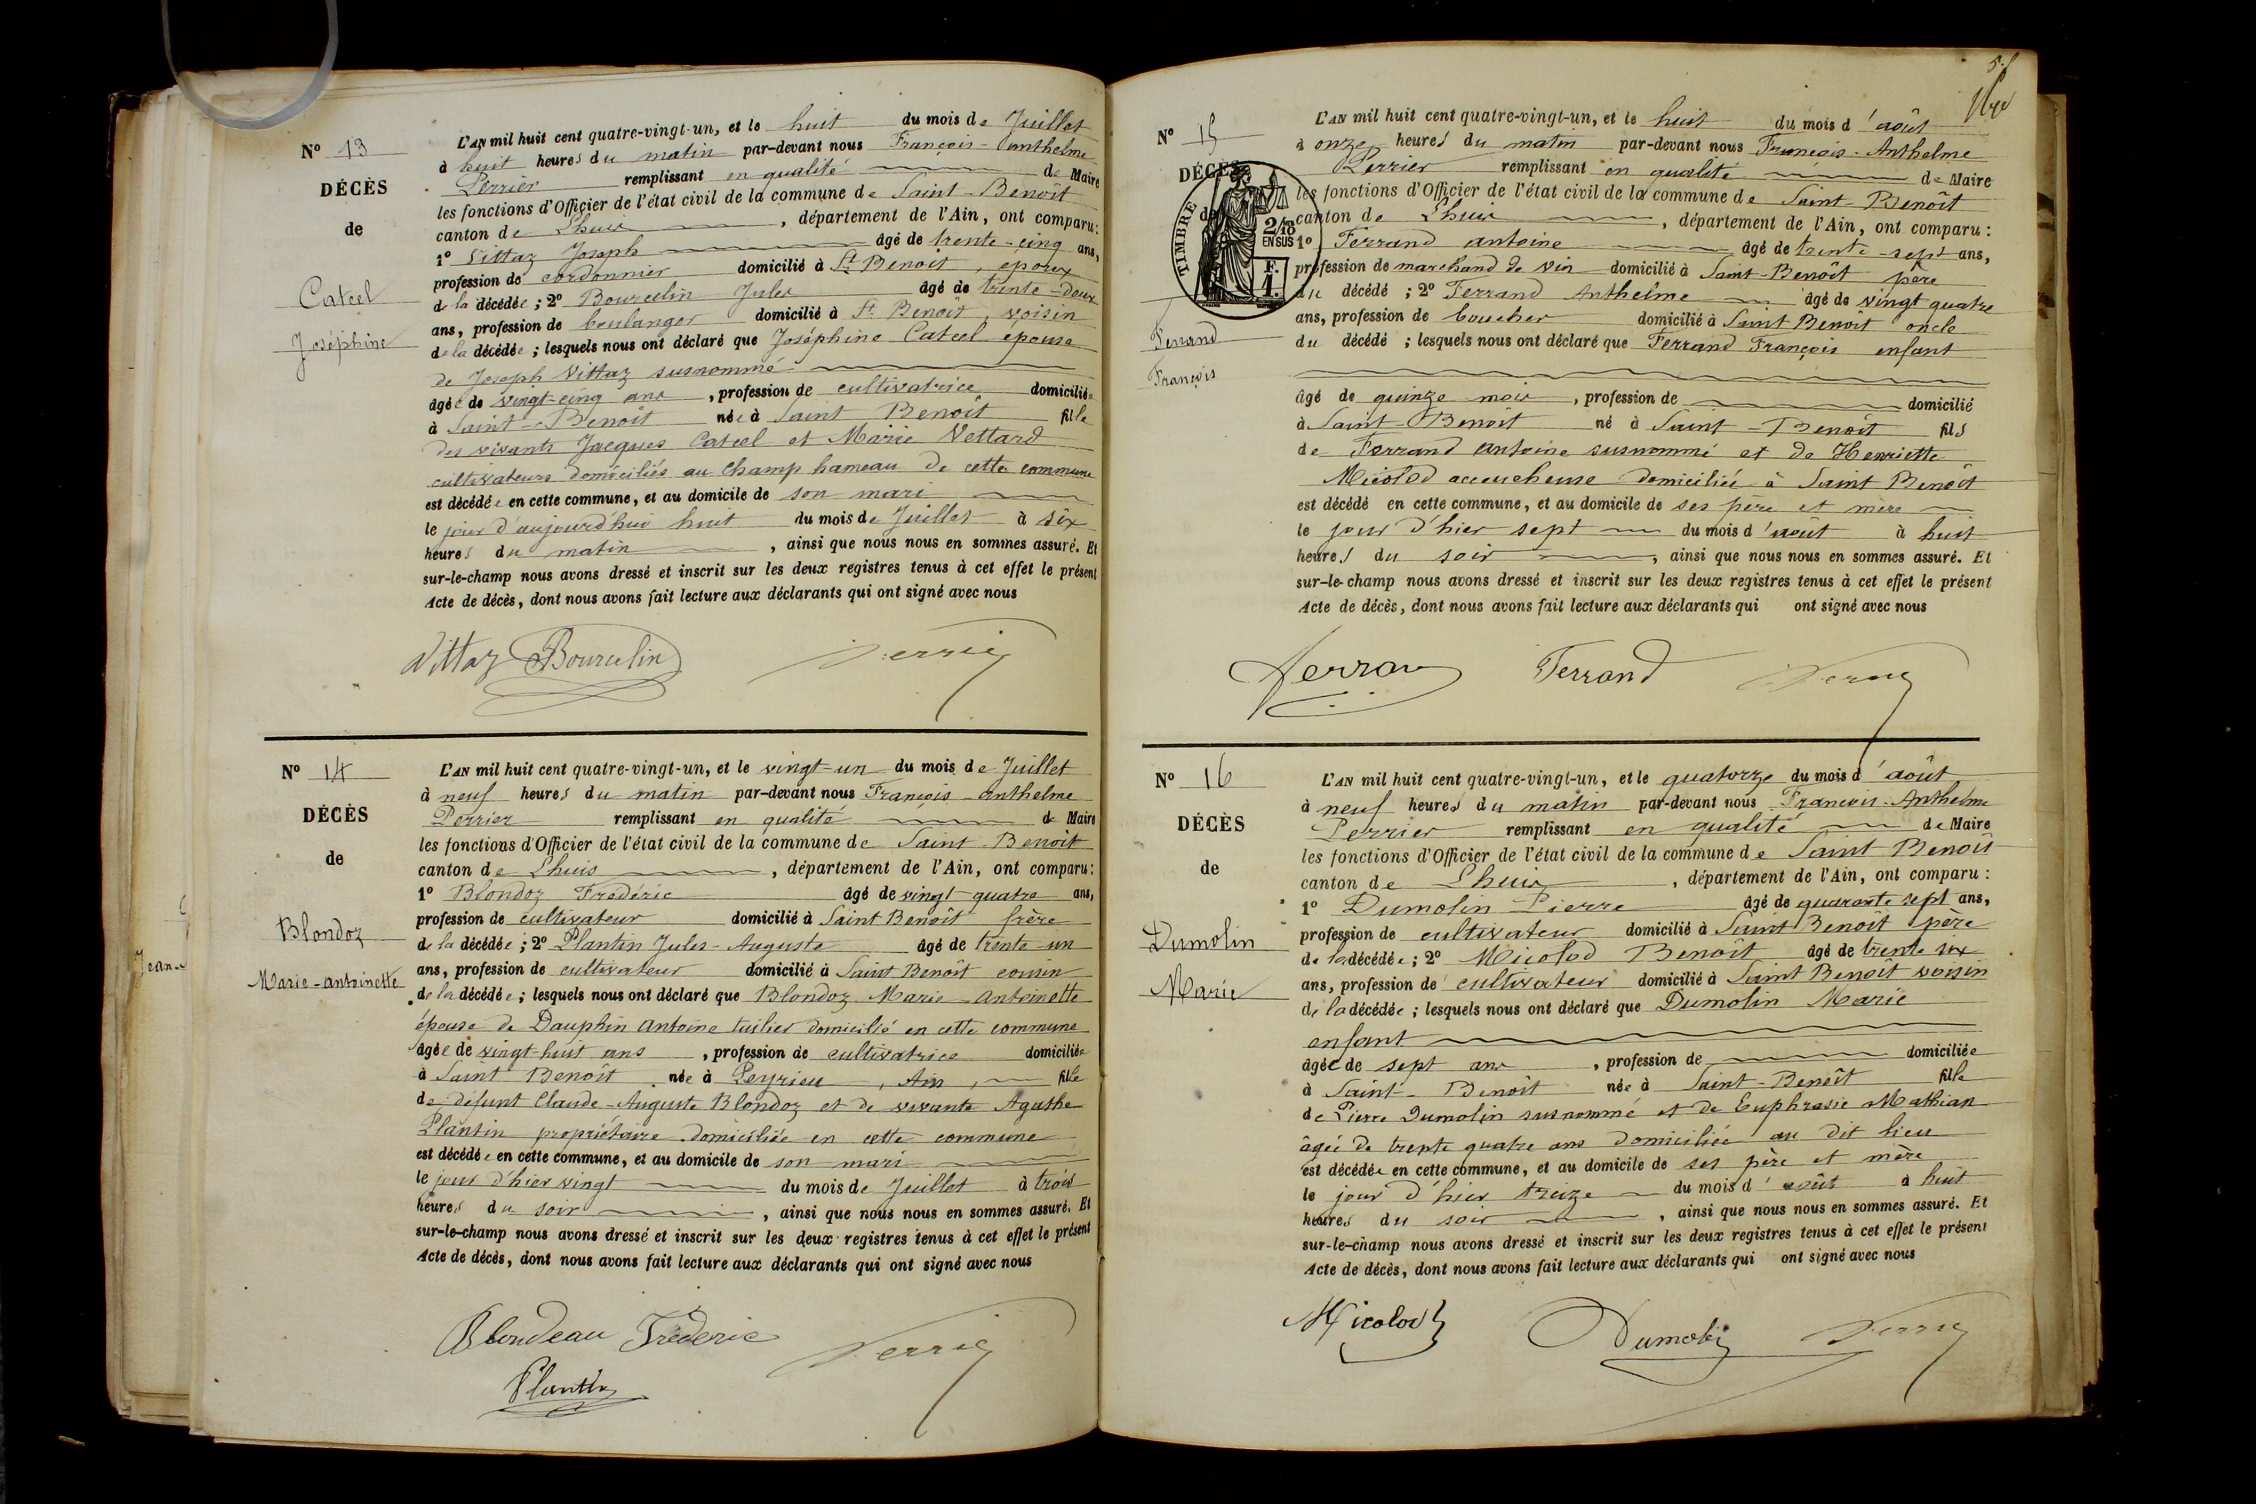 Nº 13
DÉCÈS
de
Catcel
Joséphine
L'AN mil huit cent quatre-vingt-un, et le huit du mois de Juillet
à huit heures du matin par-devant nous François-Anthelme
Perrier remplissant en qualité de Maire
les fonctions d'Officier de l'état civil de la commune de Saint-Benoît
canton de Lhuis, département de l'Ain, ont comparu:
1º Vittaz Joseph âgé de trente-cinq ans,
profession de cordonnier domicilié à St Benoit, epoux
de la décédée; 2º Bourcelin Jules âgé de trente-deux
ans, profession de boulanger domicilié à St Benoit, voisin
de la décédée; lesquels nous ont déclaré que Joséphine Catcel epouse
de Joseph Vittaz susnommé
âgée de vingt-cinq ans, profession de cultivatrice domiciliée
à Saint-Benoît née à Saint Benoît fille
des vivants Jacques Catcel et Marie Vettard
cultivateurs domiciliés au Champ hameau de cette commune
est décédée en cette commune, et au domicile de son mari
le jour d'aujourd'hui huit du mois de Juillet à six
heures du matin, ainsi que nous nous en sommes assuré. Et
sur-le-champ nous avons dressé et inscrit sur les deux registres tenus à cet effet le présent
Acte de décès, dont nous avons fait lecture aux déclarants qui ont signé avec nous
Vittaz Bourcelin Perrier
Nº 14
DÉCÈS
de
Blondoz
Marie-Antoinette
L'AN mil huit cent quatre-vingt-un, et le vingt-un du mois de Juillet
à neuf heures du matin par-devant nous François-Anthelme
Perrier remplissant en qualité de Maire
les fonctions d'Officier de l'état civil de la commune de Saint-Benoît
canton de Lhuis, département de l'Ain, ont comparu:
1º Blondoz Frédéric âgé de vingt-quatre ans,
profession de cultivateur domicilié à Saint Benoît frère
de la décédée; 2º Plantin Jules-Auguste âgé de trente-un
ans, profession de cultivateur domicilié à Saint Benoît cousin
de la décédée; lesquels nous ont déclaré que Blondoz Marie-Antoinette
épouse de Dauphin Antoine tuilier domicilié en cette commune
âgée de vingt-huit ans, profession de cultivatrice domiciliée
à Saint Benoît née à Peyrieu, Ain, fille
de défunt Claude-Auguste Blondoz et de vivante Agathe
Plantin propriétaire domiciliée en cette commune
est décédée en cette commune, et au domicile de son mari
le jour d'hier vingt du mois de Juillet à trois
heures du soir, ainsi que nous nous en sommes assuré. Et
sur-le-champ nous avons dressé et inscrit sur les deux registres tenus à cet effet le présent
Acte de décès, dont nous avons fait lecture aux déclarants qui ont signé avec nous
Blondeau Fréderic Perrier
Plantin
Jeanne
Nº 15
DÉCÈS
de
TIMBRE
2/10
EN SUS
F.
1.
Ferrand
François
L'AN mil huit cent quatre-vingt-un, et le huit du mois d'août
à onze heures du matin par-devant nous François-Anthelme
Perrier remplissant en qualité de Maire
les fonctions d'Officier de l'état civil de la commune de Saint-Benoît
canton de Lhuis, département de l'Ain, ont comparu:
1º Ferrand Antoine âgé de trente-sept ans,
profession de marchand de vin domicilié à Saint-Benoît père
du décédé; 2º Ferrand Anthelme âgé de vingt quatre
ans, profession de boucher domicilié à Saint Benoît oncle
du décédé; lesquels nous ont déclaré que Ferrand François enfant
âgé de quinze mois, profession de domicilié
à Saint-Benoît né à Saint-Benoît fils
de Ferrand Antoine susnommé et de Henriette
Micolod accoucheuse domiciliée à Saint Benoît
est décédé en cette commune, et au domicile de ses père et mère
le jour d'hier sept du mois d'août à huit
heures du soir, ainsi que nous nous en sommes assuré. Et
sur-le-champ nous avons dressé et inscrit sur les deux registres tenus à cet effet le présent
Acte de décès, dont nous avons fait lecture aux déclarants qui ont signé avec nous
Ferran Ferrand Perrier
Nº 16
DÉCÈS
de
Dumolin
Marie
L'AN mil huit cent quatre-vingt-un, et le quatorze du mois d'août
à neuf heures du matin par-devant nous François-Anthelme
Perrier remplissant en qualité de Maire
les fonctions d'Officier de l'état civil de la commune de Saint Benoît
canton de Lhuis, département de l'Ain, ont comparu:
1º Dumolin Pierre âgé de quarante sept ans,
profession de cultivateur domicilié à Saint Benoît père
de la décédée; 2º Micolod Benoît âgé de trente six
ans, profession de cultivateur domicilié à Saint Benoît voisin
de la décédée; lesquels nous ont déclaré que Dumolin Marie
enfant
âgée de sept ans, profession de domiciliée
à Saint-Benoît née à Saint-Benoît fille
de Pierre Dumolin susnommé et de Euphrasie Mathian
âgée de trente quatre ans domiciliée au dit lieu
est décédée en cette commune, et au domicile de ses père et mère
le jour d'hier treize du mois d'août à huit
heures du soir, ainsi que nous nous en sommes assuré. Et
sur-le-champ nous avons dressé et inscrit sur les deux registres tenus à cet effet le présent
Acte de décès, dont nous avons fait lecture aux déclarants qui ont signé avec nous
Micolod Dumolin Perrier